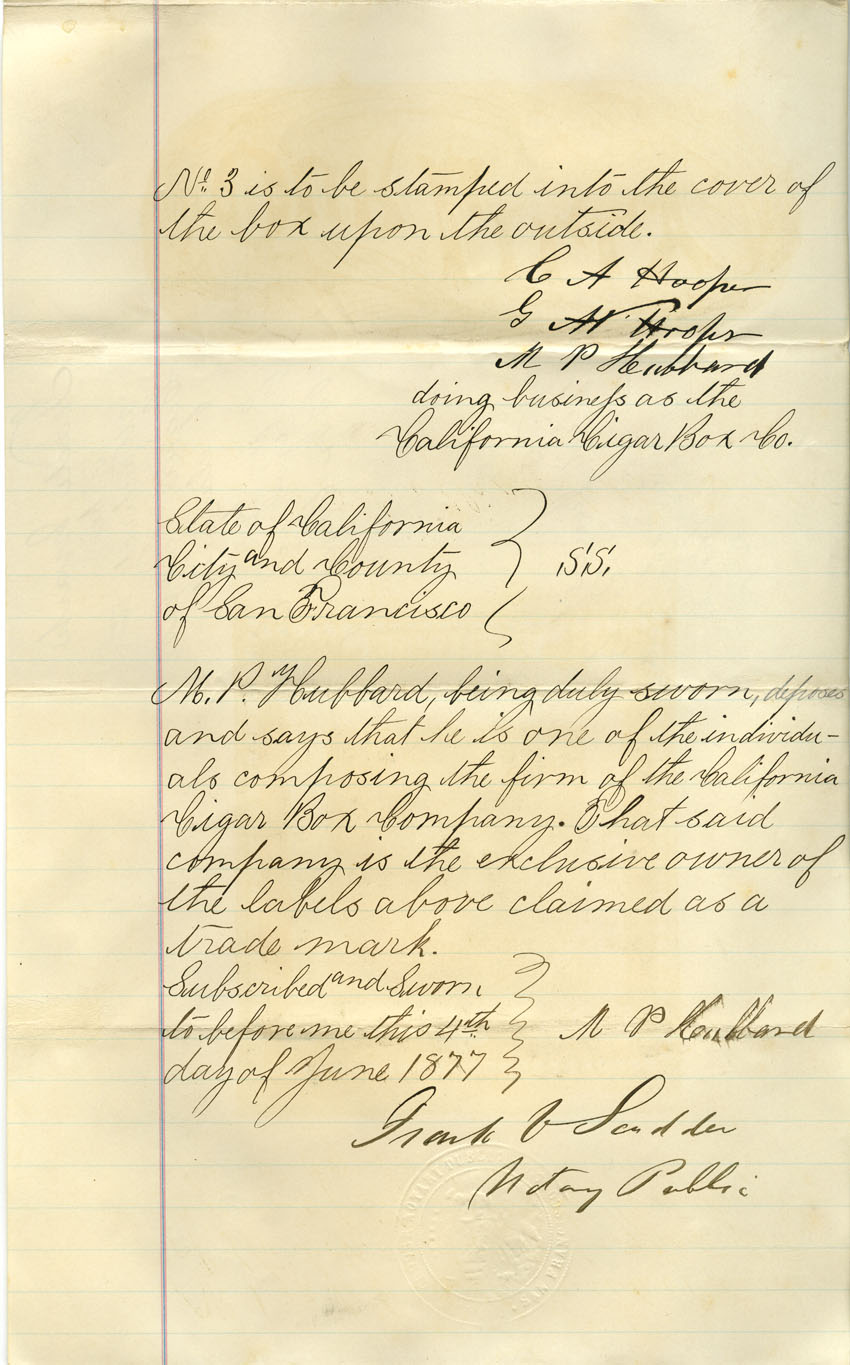 No. 3 is to be stamped into the cover of
the box upon the outside.
C A Hooper
G W Hooper
M P Hubbard
doing business as the
California Cigar Box Co.
State of California
City and County
of San Francisco
S.S.
M. P. Hubbard, being duly sworn, deposes
and says that he is one of the individu-
als composing the firm of the California
Cigar Box Company. That said
company is the exclusive owner of
the labels above claimed as a
trade mark.
Subscribed and Sworn
to before me this 4th
day of June 1877
M P Hubbard
Frank V Scudder
Notary Public